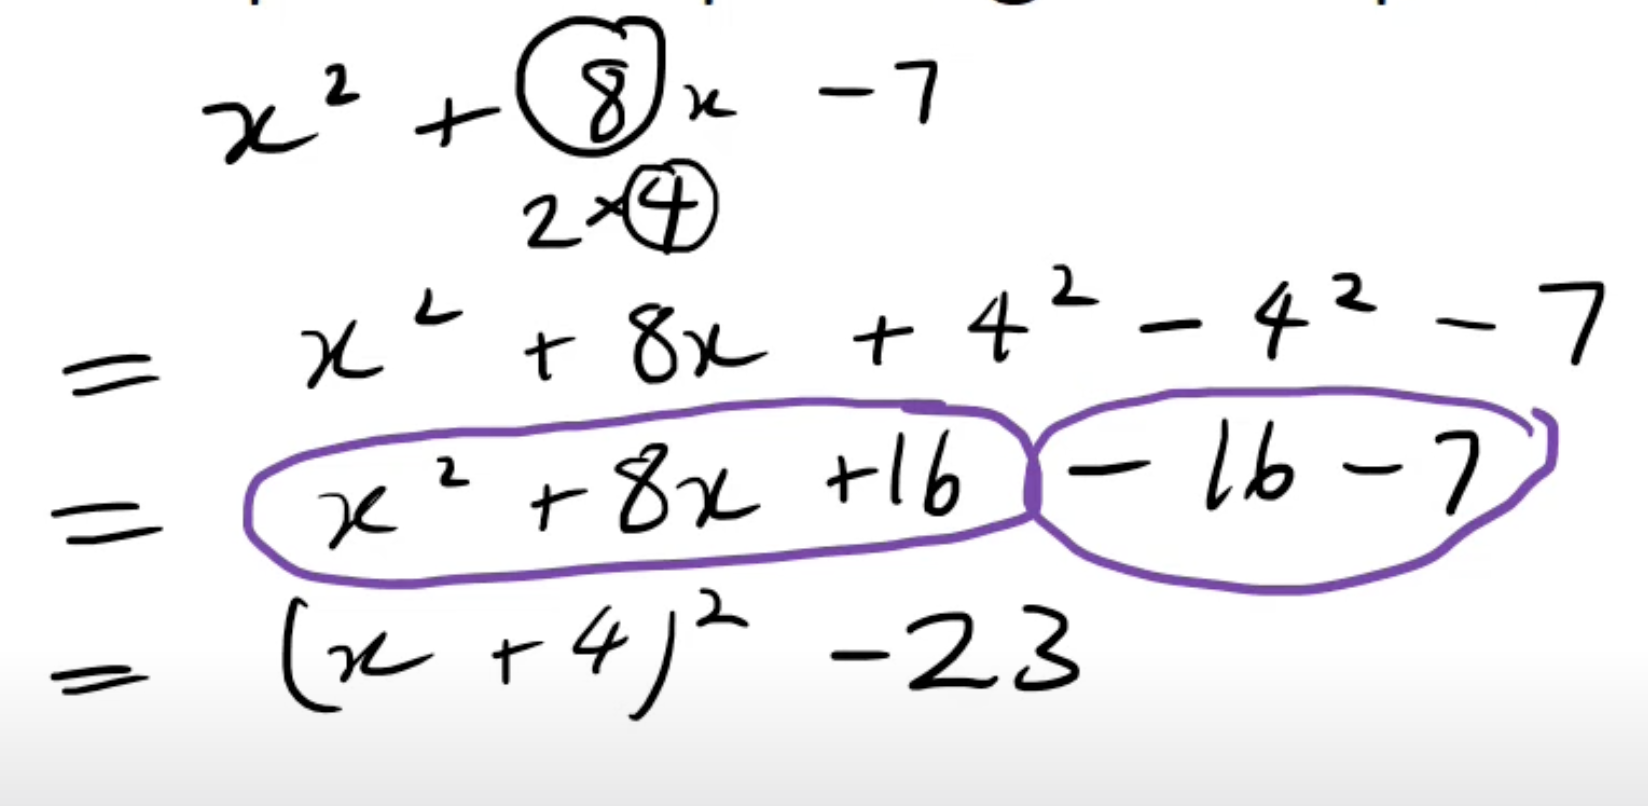 x² + 8x - 7
2×4
= x² + 8x + 4² - 4² - 7
= x² + 8x + 16 - 16 - 7
= (x + 4)² - 23